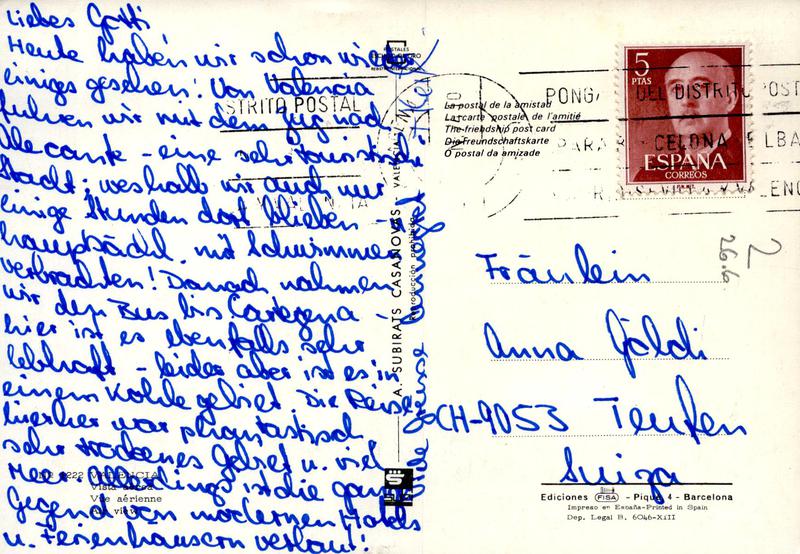 Liebes Gotti
Heute haben wir schon wieder
einiges gesehen! Von Valencia
fuhren wir mit dem Zug nach
Alecante - eine sehr touristische
Stadt; weshalb wir auch nur
einige Stunden dort blieben -
hauptsächl. mit Schwimmen
verbrachten! Danach nahmen
wir den Bus bis Cartegena -
hier ist es ebenfalls sehr
lebhaft - leider aber ist es in
einem Kohlegebiet. Die Reise
hierher war phantastisch
sehr trockenes Gebiet u. viel
Meer, allerdings ist die ganze
Gegend von modernen Hotels
u. Ferienhäusern verbaut!
Viele Grüsse
222 VALENCIA
Vista aérea
Vue aérienne
Air view
POSTALES
A. SUBIRATS CASANOVAS
VALENCIA
Reproducción prohibida
La postal de la amistad
La carte postale de l'amitié
The friendship post card
Die Freundschaftskarte
O postal da amizade
STRITO POSTAL
PONGA DEL DISTRITO POST
PARA BARCELONA BILBA
VALENC
5
PTAS
ESPAÑA
CORREOS
2
26.6
Fräulein
Anna Göldi
CH-9053 Teufen
Suiza
Ediciones FISA - Pique, 4 - Barcelona
Impreso en España-Printed in Spain
Dep. Legal B. 6046-XIII